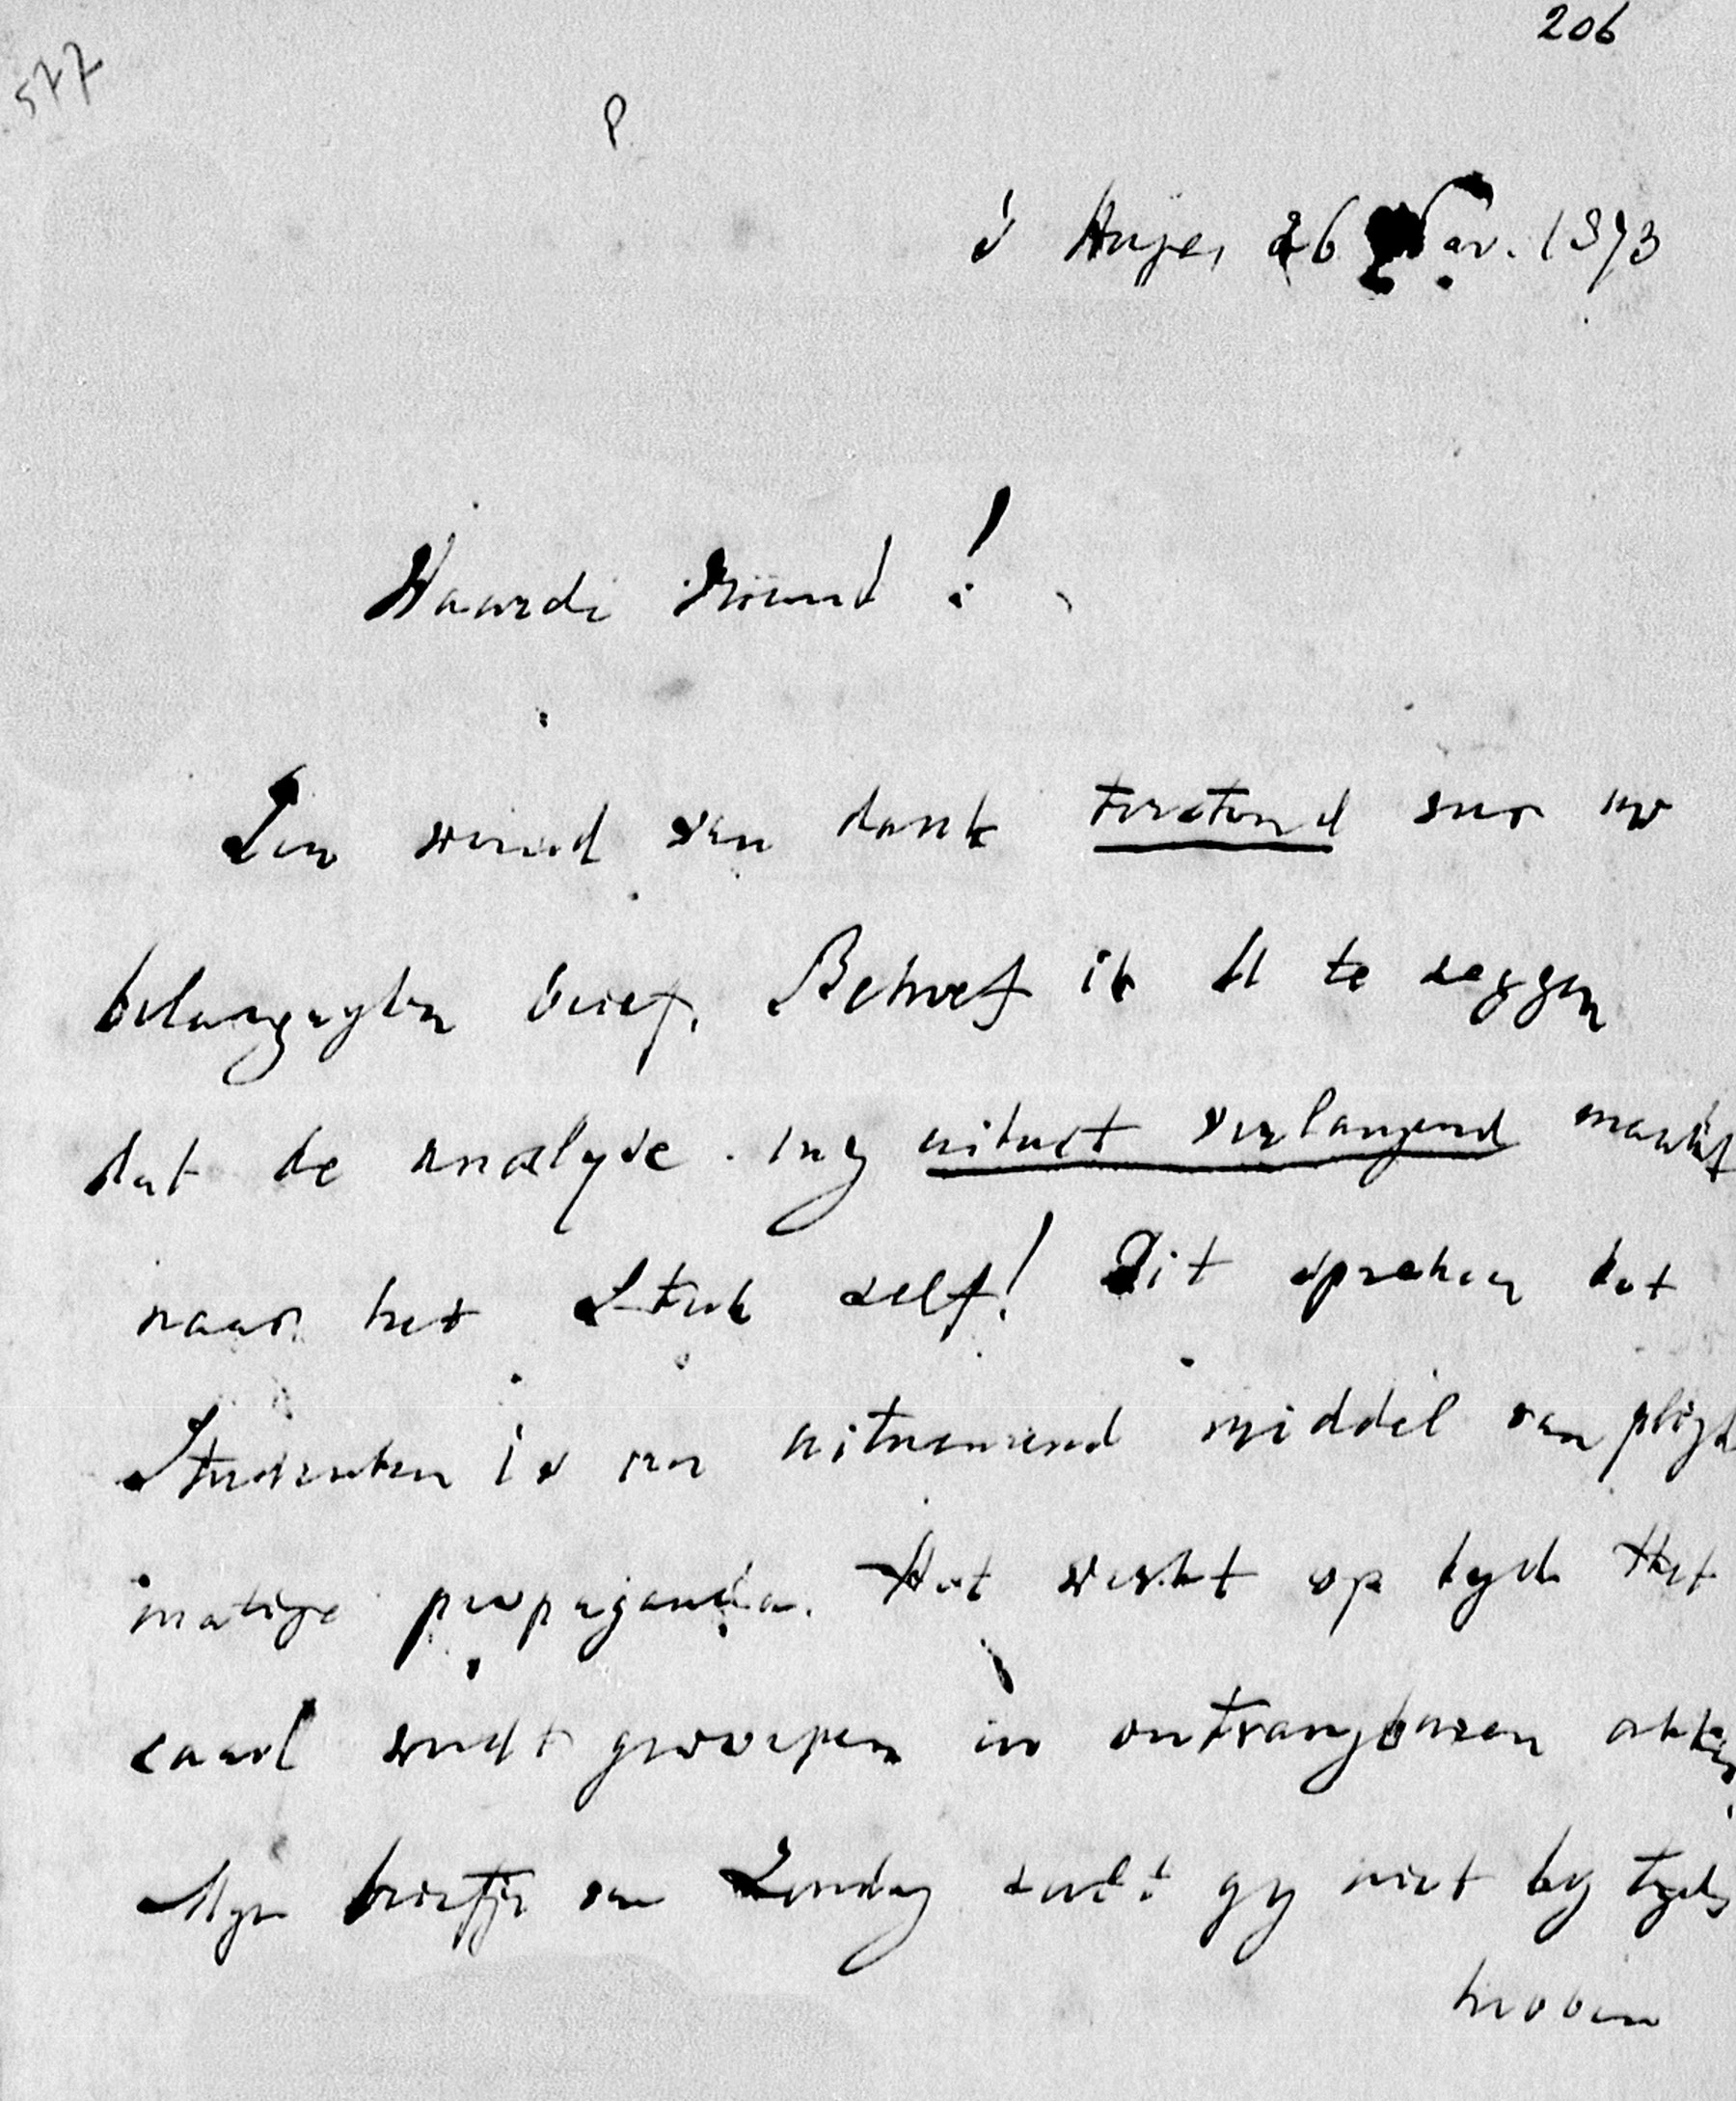 206
577
P
's Hage, 26 Nov. 1873
Waarde Vriend!
Een woord van dank terstond voor uw
belangryken brief. Behoef ik U te zeggen
dat de analyse my uiterst verlangend maakt
naar het stuk zelf! Dit spreken tot
Studenten is een uitnemend middel van pligt
matige propaganda. Het werkt op tyd. Het
zaad wordt geworpen in ontvangbaren akker.
Myn briefje van Zondag zult gy niet by tyds
hebben